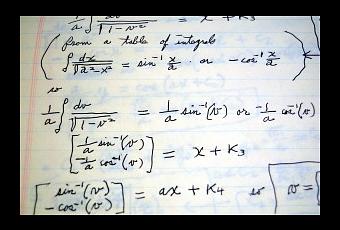 1/a ∫ dv/√(1-v²) = x + K₃
(from a table of integrals
∫ dx/√(a²-x²) = sin⁻¹ x/a · or -cos⁻¹ x/a)
so
1/a ∫ dv/√(1-v²) = 1/a sin⁻¹(v) or -1/a cos⁻¹(v)
[1/a sin⁻¹(v)
-1/a cos⁻¹(v)] = x + K₃
[sin⁻¹(v)
-cos⁻¹(v)] = ax + K₄ so v =